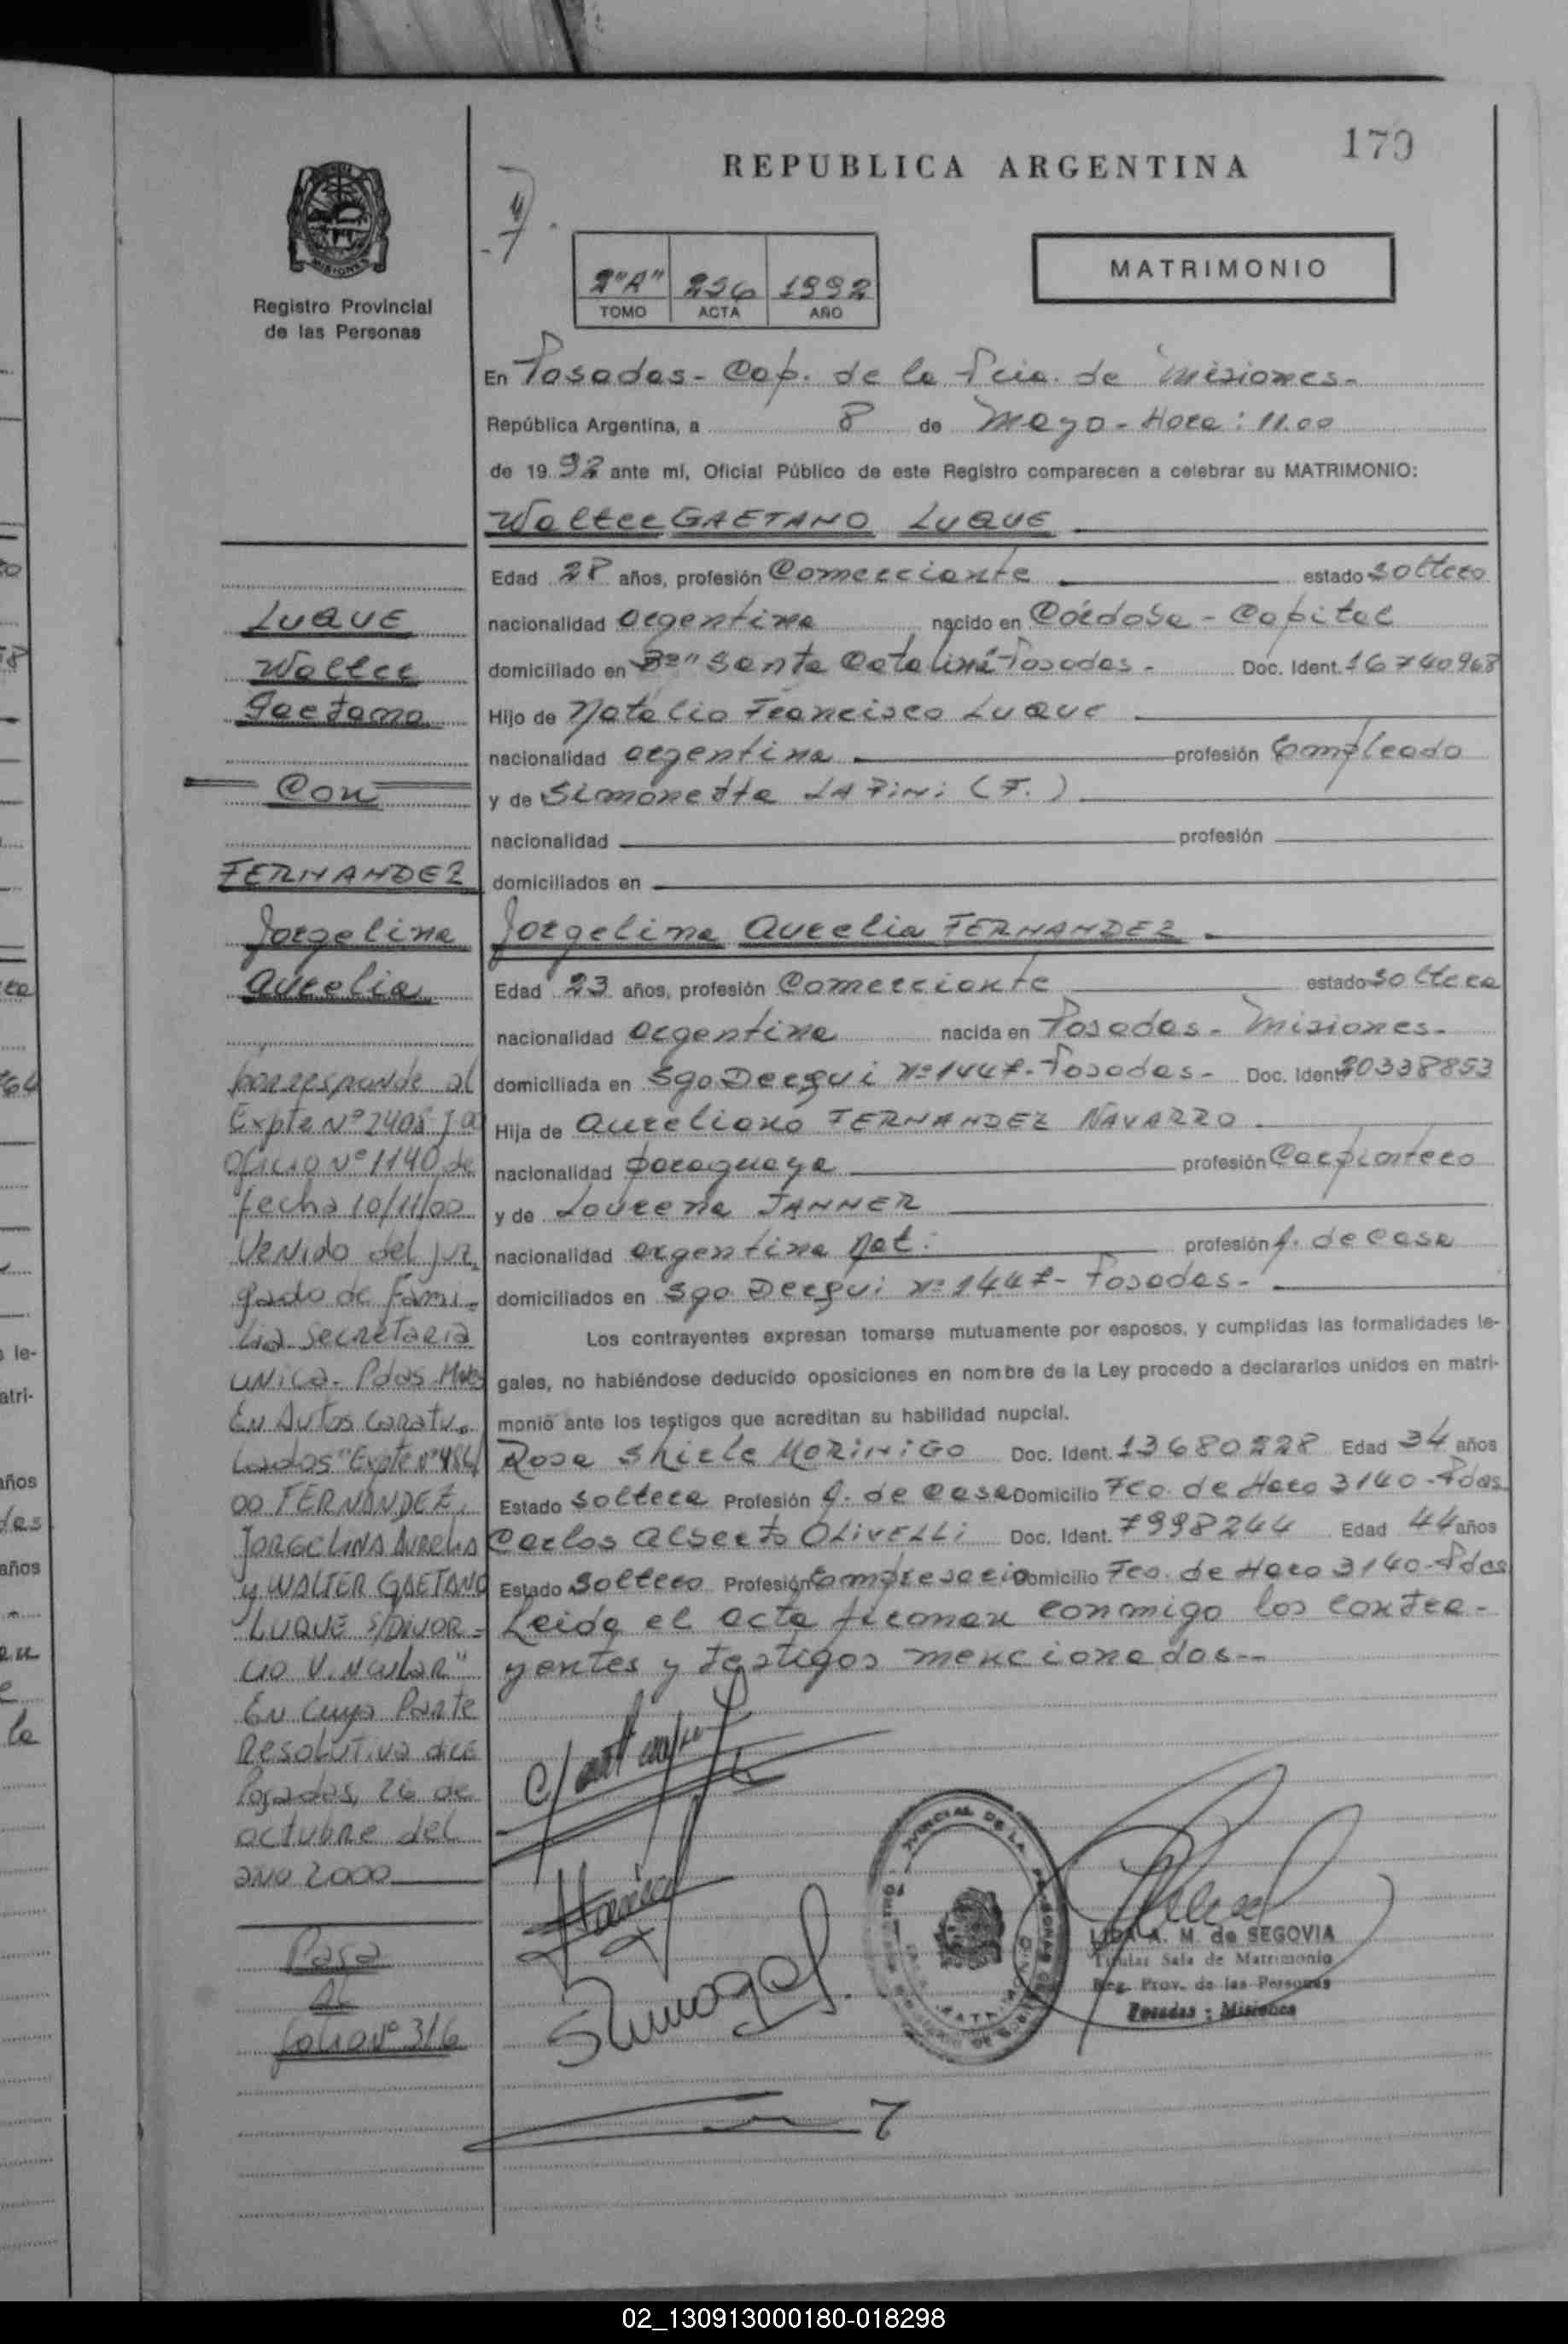 170
REPUBLICA ARGENTINA
MISIONES
Registro Provincial
de las Personas
2"A" 256 1992
TOMO ACTA AÑO
MATRIMONIO
En Posadas - Cap. de la Pcia. de Misiones -
República Argentina, a 8 de Mayo - Hora: 11.00
de 1992 ante mí, Oficial Público de este Registro comparecen a celebrar su MATRIMONIO:
Walter GAETANO LUQUE
Edad 28 años, profesión Comerciante estado soltero
nacionalidad argentina nacido en Córdoba - Capital
domiciliado en Bº " Santa Catalina - Posadas - Doc. Ident. 16740968
Hijo de Natalio Francisco LUQUE
nacionalidad argentina profesión Empleado
y de Simonetta LAPINI (F.)
nacionalidad profesión
domiciliados en
Jorgelina Aurelia FERNANDEZ
Edad 23 años, profesión Comerciante estado soltera
nacionalidad argentina nacida en Posadas - Misiones -
domiciliada en Sgo Derqui Nº 1447 - Posadas - Doc. Ident. 20338853
Hija de Aureliano FERNANDEZ NAVARRO
nacionalidad paraguaya profesión Carpintero
y de Laurena JANNER
nacionalidad argentina nat. profesión A. de casa
domiciliados en Sgo Derqui Nº 1447 - Posadas -
Los contrayentes expresan tomarse mutuamente por esposos, y cumplidas las formalidades le-
gales, no habiéndose deducido oposiciones en nombre de la Ley procedo a declararlos unidos en matri-
monio ante los testigos que acreditan su habilidad nupcial.
Rosa Shiela MORINIGO Doc. Ident. 13680228 Edad 34 años
Estado soltera Profesión A. de casa Domicilio Fco. de Haro 3140 - Pdas
Carlos Alberto OLIVELLI Doc. Ident. 7998244 Edad 44 años
Estado soltero Profesión Empresario Domicilio Fco. de Haro 3140 - Pdas
Leida el acta firman conmigo los contra-
yentes y testigos mencionados --
LUQUE
Walter
Gaetano
Con
FERNANDEZ
Jorgelina
Aurelia
Corresponde al
Expte Nº 2408 J 00
Oficio Nº 1140 de
fecha 10/11/00
Venido del Juz
gado de Fami-
lia Secretaria
Unica - Pdas - Mnes
En Autos Caratu-
lados "Expte Nº 486/
00 FERNANDEZ,
JORGELINA AURELIA
y WALTER GAETANO
LUQUE S/DIVOR-
cio Vincular"
En Cuya Parte
Resolutiva dice
Posadas, 26 de
octubre del
año 2000
Pasa
al
folio Nº 316
LIDA A. M. de SEGOVIA
Titular Sala de Matrimonio
Reg. Prov. de las Personas
Posadas : Misiones
02_130913000180-018298